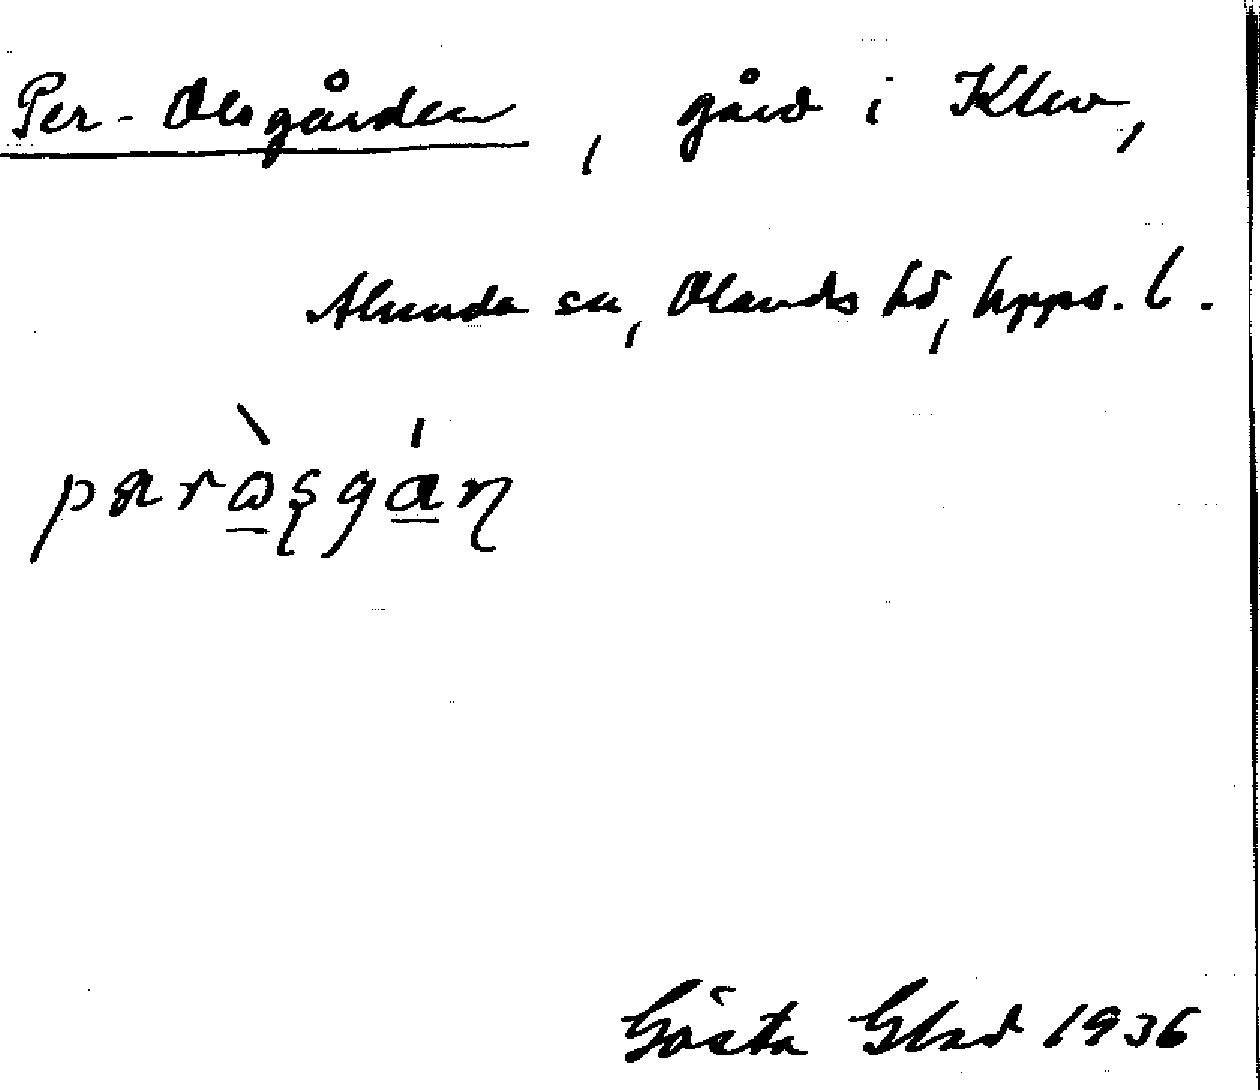 Per-Olsgården, gård i Klev,
Alunda sn, Olands hd, Upps. l.
Gösta Glad 1936